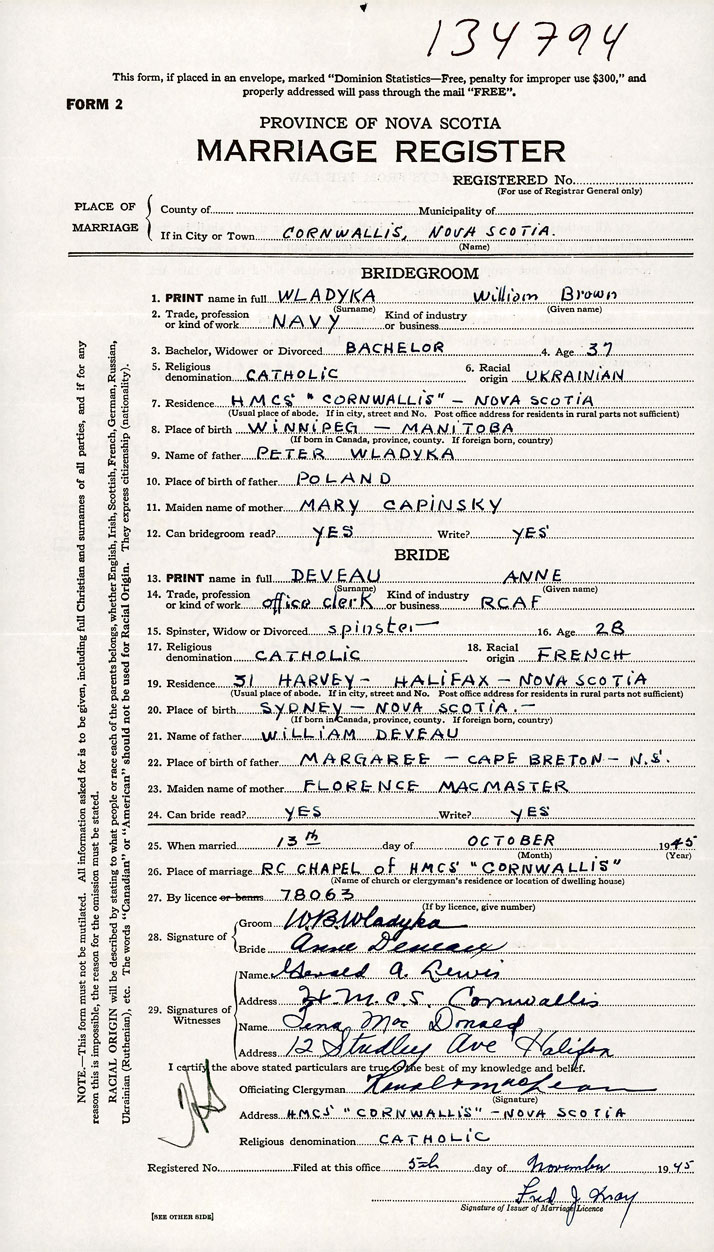 134794
This form, if placed in an envelope, marked "Dominion Statistics—Free, penalty for improper use $300," and
properly addressed will pass through the mail "FREE".
FORM 2
PROVINCE OF NOVA SCOTIA
MARRIAGE REGISTER
REGISTERED No.
(For use of Registrar General only)
PLACE OF MARRIAGE
County of Municipality of
If in City or Town CORNWALLIS, NOVA SCOTIA.
(Name)
BRIDEGROOM
1. PRINT name in full WLADYKA William Brown
(Surname) (Given name)
2. Trade, profession or kind of work NAVY Kind of industry or business
3. Bachelor, Widower or Divorced BACHELOR 4. Age 37
5. Religious denomination CATHOLIC 6. Racial origin UKRAINIAN
7. Residence HMCS "CORNWALLIS" - NOVA SCOTIA
(Usual place of abode. If in city, street and No. Post office address for residents in rural parts not sufficient)
8. Place of birth WINNIPEG - MANITOBA
(If born in Canada, province, county. If foreign born, country)
9. Name of father PETER WLADYKA
10. Place of birth of father POLAND
11. Maiden name of mother MARY CAPINSKY
12. Can bridegroom read? YES Write? YES
BRIDE
13. PRINT name in full DEVEAU ANNE
(Surname) (Given name)
14. Trade, profession or kind of work office clerk Kind of industry or business RCAF
15. Spinster, Widow or Divorced spinster 16. Age 28
17. Religious denomination CATHOLIC 18. Racial origin FRENCH
19. Residence 31 HARVEY - HALIFAX - NOVA SCOTIA
(Usual place of abode. If in city, street and No. Post office address for residents in rural parts not sufficient)
20. Place of birth SYDNEY - NOVA SCOTIA. -
(If born in Canada, province, county. If foreign born, country)
21. Name of father WILLIAM DEVEAU
22. Place of birth of father MARGAREE - CAPE BRETON - N.S.
23. Maiden name of mother FLORENCE MACMASTER
24. Can bride read? YES Write? YES
25. When married 13th day of OCTOBER 1945
(Month) (Year)
26. Place of marriage RC CHAPEL of HMCS "CORNWALLIS"
(Name of church or clergyman's residence or location of dwelling house)
27. By licence or banns 78063
(If by licence, give number)
28. Signature of
Groom W.B. Wladyka
Bride Anne Deveau
29. Signatures of Witnesses
Name Gerald A. Lewis
Address H.M.C.S. Cornwallis
Name Tena Mac Donald
Address 12 Studley Ave Halifax
I certify the above stated particulars are true to the best of my knowledge and belief.
Officiating Clergyman MacLean
(Signature)
Address HMCS "CORNWALLIS" - NOVA SCOTIA
Religious denomination CATHOLIC
Registered No. Filed at this office 5th day of November 1945
Fred J.
Signature of Issuer of Marriage Licence
[SEE OTHER SIDE]
NOTE.—This form must not be mutilated. All information asked for is to be given, including full Christian and surnames of all parties, and if for any
reason this is impossible, the reason for the omission must be stated.
RACIAL ORIGIN will be described by stating to what people or race each of the parents belongs, whether English, Irish, Scottish, French, German, Russian,
Ukrainian (Ruthenian), etc. The words "Canadian" or "American" should not be used for Racial Origin. They express citizenship (nationality).